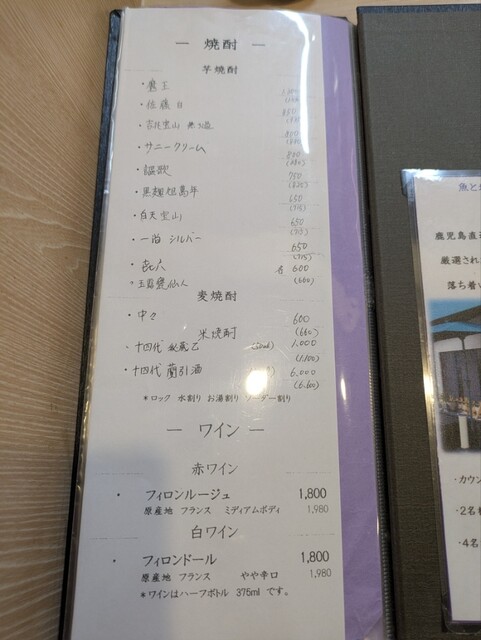 ― 焼酎 ―
芋焼酎
・魔王
・佐藤 白
・吉兆宝山
・サニークリーム 800
・ 750
・黒麹 650
・白天宝山 650
・一尚 シルバー 650
(715)
・㐂六 各 600
玉露甕仙人 (660)
麦焼酎
・中々 600
(660)
米焼酎
・十四代 秘蔵乙 1,000
(1,100)
・十四代 蘭引酒 6,000
(6,600)
*ロック 水割り お湯割り ソーダー割り
― ワイン ―
赤ワイン
・ フィロンルージュ 1,800
原産地 フランス ミディアムボディ 1,980
白ワイン
・ フィロンドール 1,800
原産地 フランス やや辛口 1,980
*ワインはハーフボトル 375ml です。
魚と
鹿児島直
厳選され
落ち着い
・カウン
・2名
・4名